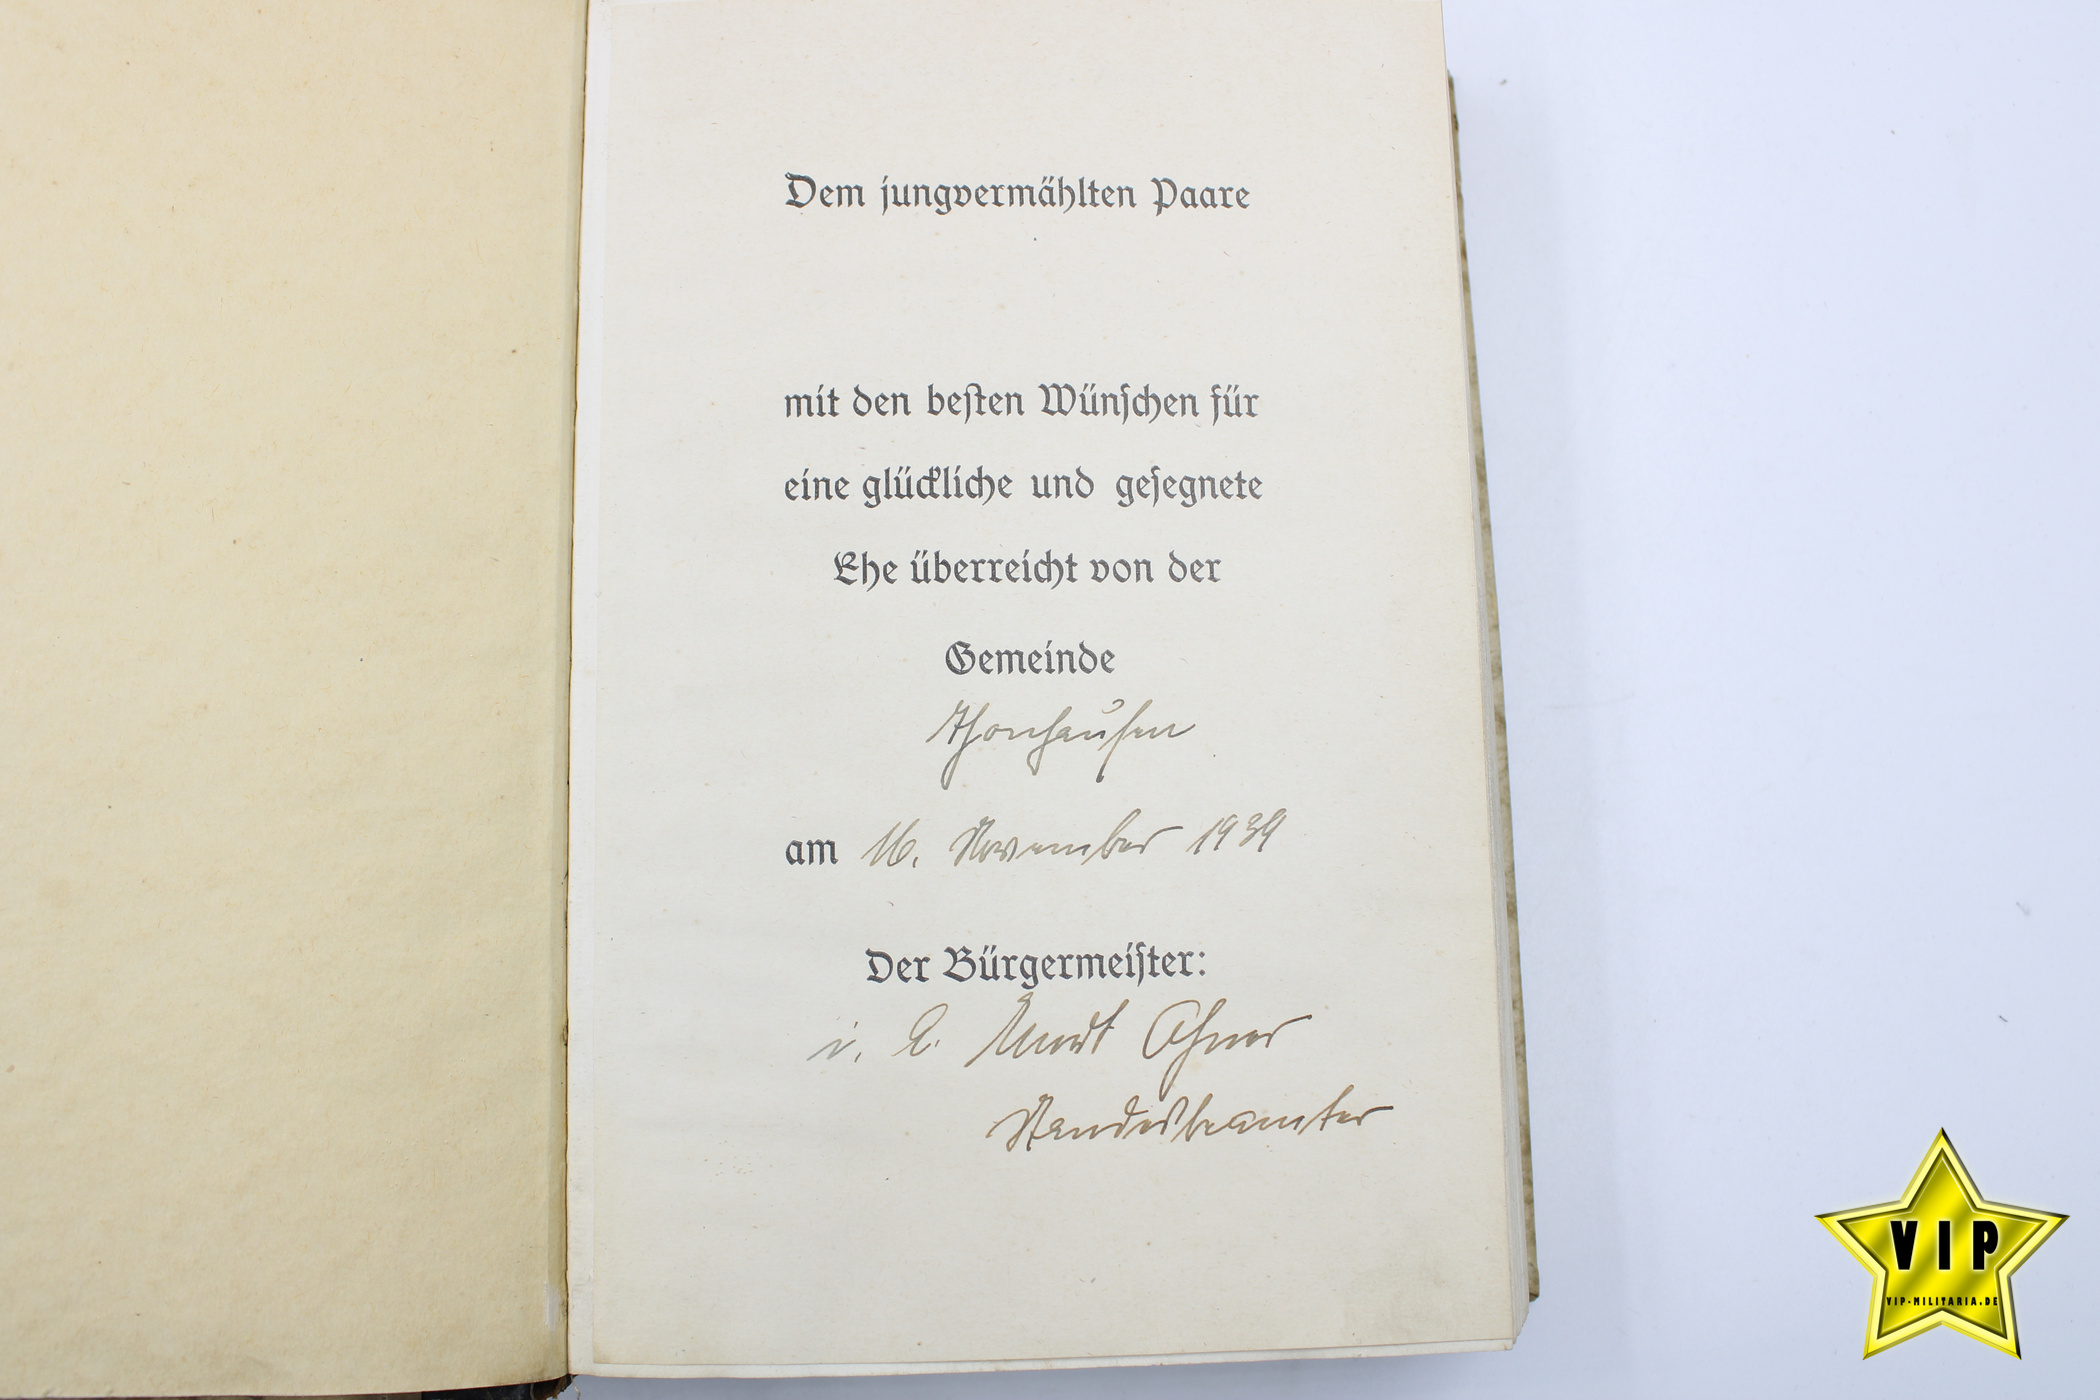 Dem jungvermählten Paare
mit den besten Wünschen für
eine glückliche und gesegnete
Ehe überreicht von der
Gemeinde
Thonhausen
am 16. November 1939
Der Bürgermeister:
i. A.
Standesbeamter
VIP
VIP-MILITARIA.DE